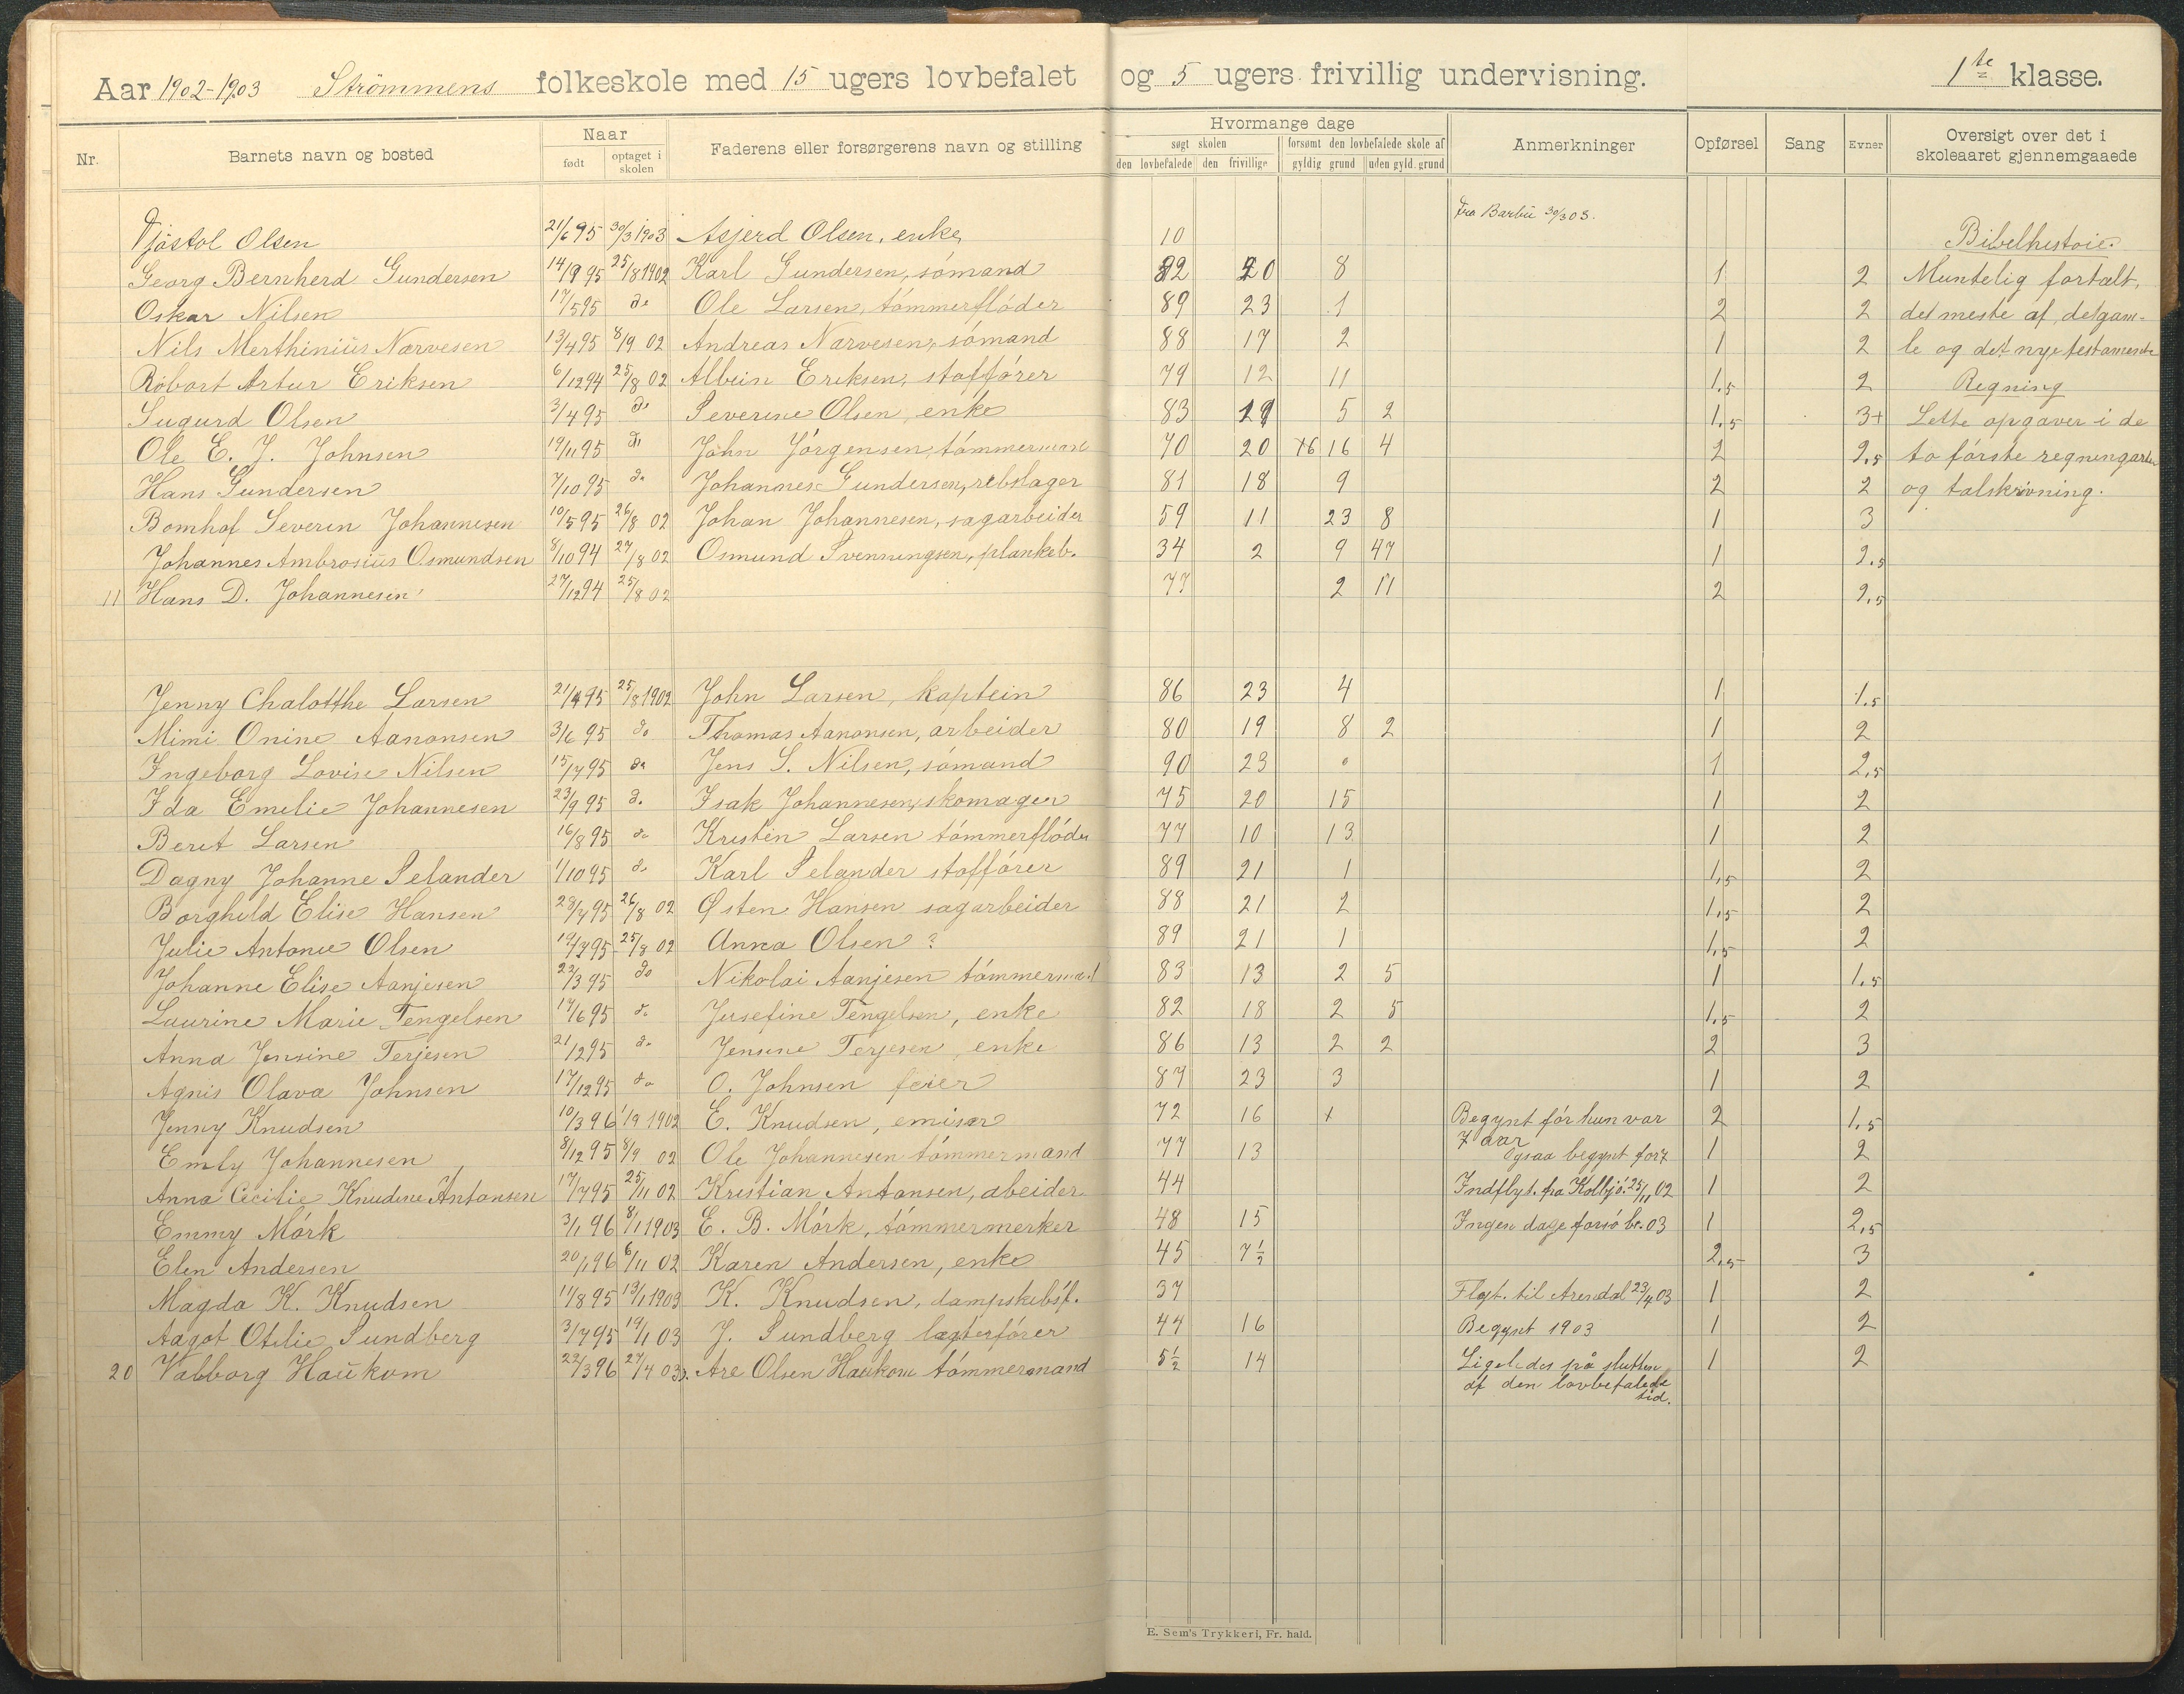 Aar 1902-1903 Strömmens folkeskole med 15 ugers lovbefalet og 5 ugers frivillig undervisning. 1te klasse.
Nr. Barnets navn og bosted Naar født optaget i skolen Faderens eller forsørgerens navn og stilling Hvormange dage søgt skolen den lovbefalede den frivillige forsømt den lovbefalede skole af gyldig grund uden gyld. grund Anmerkninger Opførsel Sang Evner Oversigt over det i skoleaaret gjennemgaaede
Fra Barbu 30/3 03.
Tjöstol Olsen 21/6 95 30/3 1903 Asjerd Olsen, enke 10 Bibelhistoie.
Georg Bernherd Gundersen 14/9 95 25/8 1902 Karl Gundersen, sómand 82 20 8 1 2 Muntelig fortalt,
Oskar Nilsen 17/5 95 do Ole Larsen, tómmerflóder 89 23 1 2 2 det meste af det gam-
Nils Merthinius Narvesen 13/4 95 8/9 02 Andreas Narvesen, sómand 88 17 2 1 2 le og det nye testamente
Robart Artur Eriksen 6/12 94 25/8 02 Albein Eriksen, staffórer 79 12 11 1,5 2 Regning
Sugurd Olsen 3/4 95 do Severine Olsen, enke 83 5 2 1,5 3+ Lette opgaver i de
Ole E. J. Johnsen 19/11 95 do John Jörgensen, tómmermand 70 20 16 4 2 2,5 to fórste regningarter
Hans Gundersen 7/10 95 do Johannes Gundersen, rebslager 81 18 9 2 2 og talskrivning.
Bomhof Severin Johannesen 10/5 95 26/8 02 Johan Johannesen, sagarbeider 59 11 23 8 1 3
Johannes Ambrosius Osmundsen 8/10 94 27/8 02 Osmund Svenningsen, plankeb. 34 2 9 47 1 2,5
11 Hans D. Johannesen 27/12 94 25/8 02 77 2 11 2 2,5
Jenny Chalotthe Larsen 21/4 95 25/8 1902 John Larsen, kaptein 86 23 4 1 1,5
Mimi Onine Aanonsen 3/6 95 do Thomas Aanonsen, arbeider 80 19 8 2 1 2
Ingeborg Lovise Nilsen 15/7 95 do Jens S. Nilsen, sómand 90 23 0 1 2,5
Ida Emelie Johannesen 23/9 95 do Isak Johannesen, skomager 75 20 15 1 2
Beret Larsen 16/8 95 do Kristen Larsen tómmerflóder 77 10 13 1 2
Dagny Johanne Selander 1/10 95 do Karl Selander staffórer 89 21 1 1,5 2
Borghild Elise Hansen 28/7 95 26/8 02 Østen Hansen sagarbeider 88 21 2 1,5 2
Julie Antonie Olsen 19/7 95 25/8 02 Anna Olsen ? 89 21 1 1,5 2
Johanne Elise Aanjesen 22/3 95 do Nikolai Aanjesen tómmermand 83 13 2 5 1 1,5
Laurine Marie Tengelsen 17/6 95 do Jusefine Tengelsen, enke 82 18 2 5 1,5 2
Anna Jensine Terjesen 21/12 95 do Jensine Terjesen, enke 86 13 2 2 2 3
Agnis Olava Johnsen 17/12 95 do O. Johnsen feier 87 23 3 1 2
Jenny Knudsen 10/3 96 1/9 1902 E. Knudsen, emisær 72 16 + Begynt fór hun var 7 aar 2 1,5
Emly Johannesen 8/12 95 8/9 02 Ole Johannesen tómmermand 77 13 Ogsaa begynt for 7 1 2
Anna Cecilie Knudine Antonsen 17/7 95 25/11 02 Kristian Antonsen, abeider 44 Indflyt. fra Kolbjö. 25/11 02 1 2
Emmy Mórk 3/1 96 8/1 1903 E. B. Mórk, tómmermerker 48 15 Ingen dage forsó be. 03 1 2,5
Elen Andersen 20/1 96 6/11 02 Karen Andersen, enke 45 7½ 2,5 3
Magda K. Knudsen 11/8 95 13/1 1903 K. Knudsen, dampskibsf. 37 Flyt. til Arendal 23/4 03 1 2
Aagot Otilie Sundberg 3/7 95 19/1 03 J. Sundberg lægterfórer 44 16 Begynt 1903 1 2
20 Valborg Haukom 22/3 96 27/4 03 Are Olsen Haukom tómmermand 5½ 14 Ligeledes på slutten 1 2
af den lovbefalede
tid.
E. Sem's Trykkeri, Fr. hald.